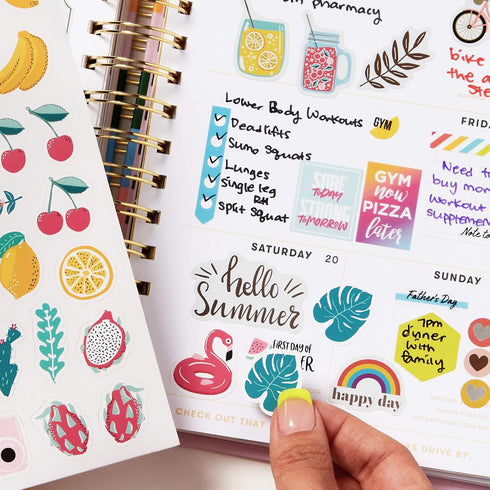 pharmacy
bike
the a
Lower Body Workouts
GYM
Deadlifts
Sumo Squats
Lunges
Single leg
Split Squat
SORE
today
STRONG
TOMORROW
GYM
NOW
PIZZA
later
FRID
Need to
buy mor
workout
supplemen
Note to
SATURDAY 20
hello
Summer
FIRST DAY of
SUNDAY
Father's Day
7pm
dinner
with
family
happy day
CHECK OUT THAT
S DRIVE BY.